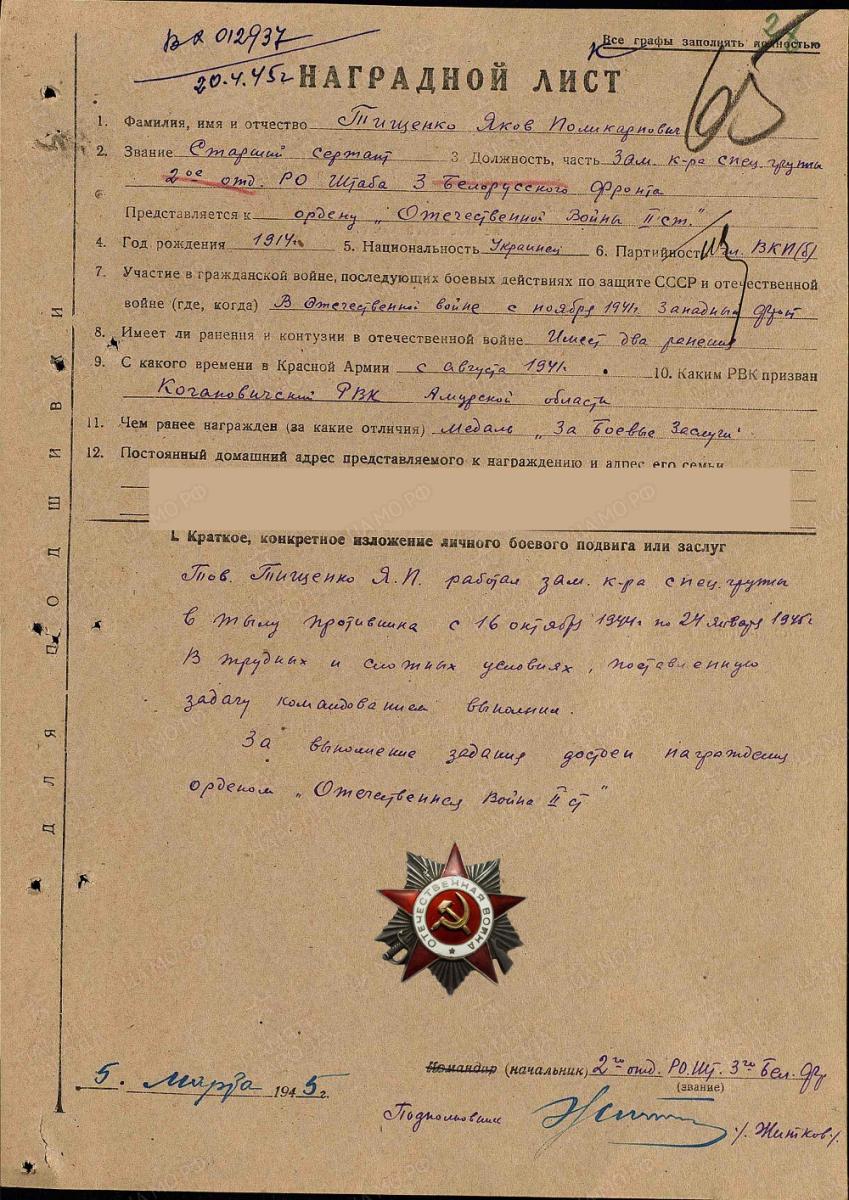 ВА 012937
20.4.45г
Все графы заполнять полностью
НАГРАДНОЙ ЛИСТ
1. Фамилия, имя и отчество Тищенко Яков Поликарпович
2. Звание Старший сержант 3 Должность, часть Зам. к-ра спец. группы
2ое отд. РО Штаба 3 Белорусского Фронта
Представляется к ордену „Отечественной Войны II ст."
4. Год рождения 1914г. 5. Национальность Украинец 6. Партийность чл. ВКП(б)
7. Участие в гражданской войне, последующих боевых действиях по защите СССР и отечественной
войне (где, когда) В Отечественной войне с ноября 1941г. Западный фронт
8. Имеет ли ранения и контузии в отечественной войне Имеет два ранения
9. С какого времени в Красной Армии с августа 1941г. 10. Каким РВК призван
Когановический РВК Амурской области
11. Чем ранее награжден (за какие отличия) Медаль „За Боевые Заслуги"
12. Постоянный домашний адрес представляемого к награждению и адрес его семьи
I. Краткое, конкретное изложение личного боевого подвига или заслуг
Тов. Тищенко Я.П. работал зам. к-ра спец. группы
в тылу противника с 16 октября 1944г по 24 января 1945г
В трудных и сложных условиях, поставленную
задачу командованием выполнил.
За выполнение задания достоен награждения
орденом „Отечественная Война II ст"
ОТЕЧЕСТВЕННАЯ ВОЙНА
Командир (начальник) 2го отд. РО. Шт. 3го Бел. фр
(звание)
5. Марта 1945г.
Подполковник /Житков/.
ДЛЯ ПОДШИВКИ
ЦАМО.РФ